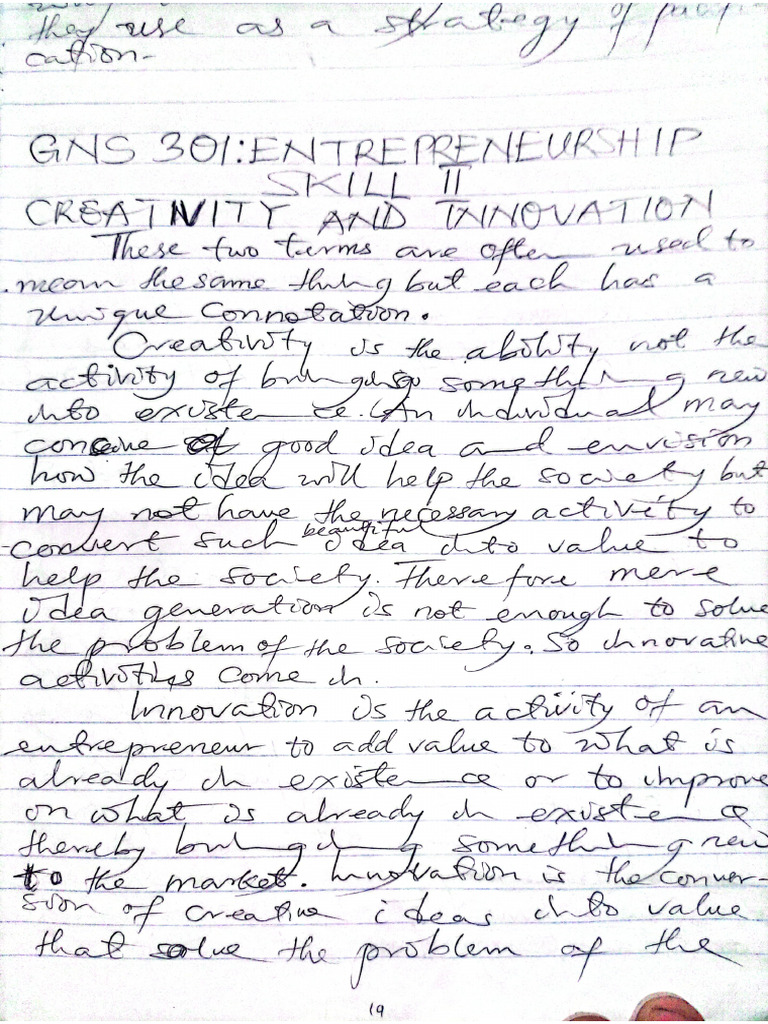 they use as a strategy of
cation-
GNS 301: ENTREPRENEURSHIP
SKILL II
CREATIVITY AND INNOVATION
These two terms are often used to
mean the same thing but each has a
unique connotation.
Creativity is the ability not the
activity of bringing something new
into existence. An individual may
conceive good idea and envision
how the idea will help the society but
may not have the necessary activity to
convert such beautiful idea into value to
help the society. Therefore mere
idea generation is not enough to solve
the problem of the society. So innovative
activities come in.
Innovation is the activity of an
entrepreneur to add value to what is
already in existence or to improve
on what is already in existence
thereby bringing something new
to the market. Innovation is the conver-
sion of creative ideas into value
that solve the problem of the
19